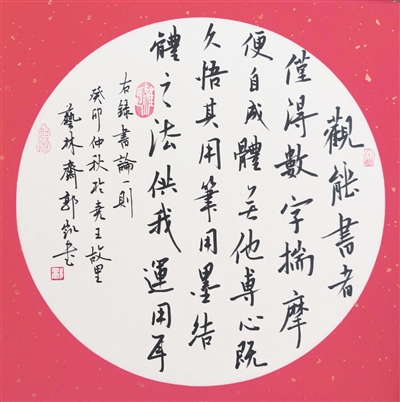 觀能書者
僅得數字揣摩
便自成體無他專心既
久悟其用筆用墨結
體之法供我運用耳
右錄書論一則
癸卯仲秋於堯王故里
藝林齋郭